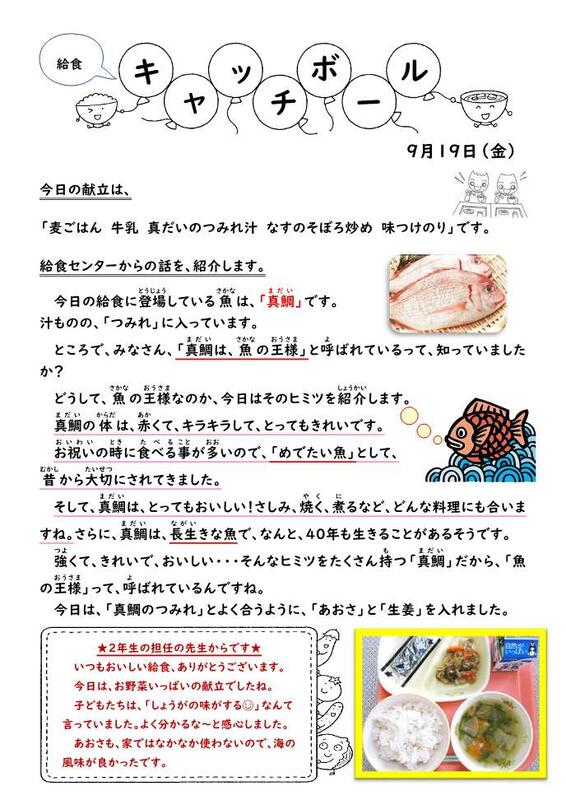 給食
キャッチボール
9月19日(金)
今日の献立は、
「麦ごはん 牛乳 真だいのつみれ汁 なすのそぼろ炒め 味つけのり」です。
給食センターからの話を、紹介します。
今日の給食に登場している魚は、「真鯛」です。
汁ものの、「つみれ」に入っています。
ところで、みなさん、「真鯛は、魚の王様」と呼ばれているって、知っていました
か?
どうして、魚の王様なのか、今日はそのヒミツを紹介します。
真鯛の体は、赤くて、キラキラして、とってもきれいです。
お祝いの時に食べる事が多いので、「めでたい魚」として、
昔から大切にされてきました。
そして、真鯛は、とってもおいしい!さしみ、焼く、煮るなど、どんな料理にも合いま
すね。さらに、真鯛は、長生きな魚で、なんと、40年も生きることがあるそうです。
強くて、きれいで、おいしい・・・そんなヒミツをたくさん持つ「真鯛」だから、「魚
の王様」って、呼ばれているんですね。
今日は、「真鯛のつみれ」とよく合うように、「あおさ」と「生姜」を入れました。
★2年生の担任の先生からです★
いつもおいしい給食、ありがとうございます。
今日は、お野菜いっぱいの献立でしたね。
子どもたちは、「しょうがの味がする☺」なんて
言っていました。よく分かるな~と感心しました。
あおさも、家ではなかなか使わないので、海の
風味が良かったです。